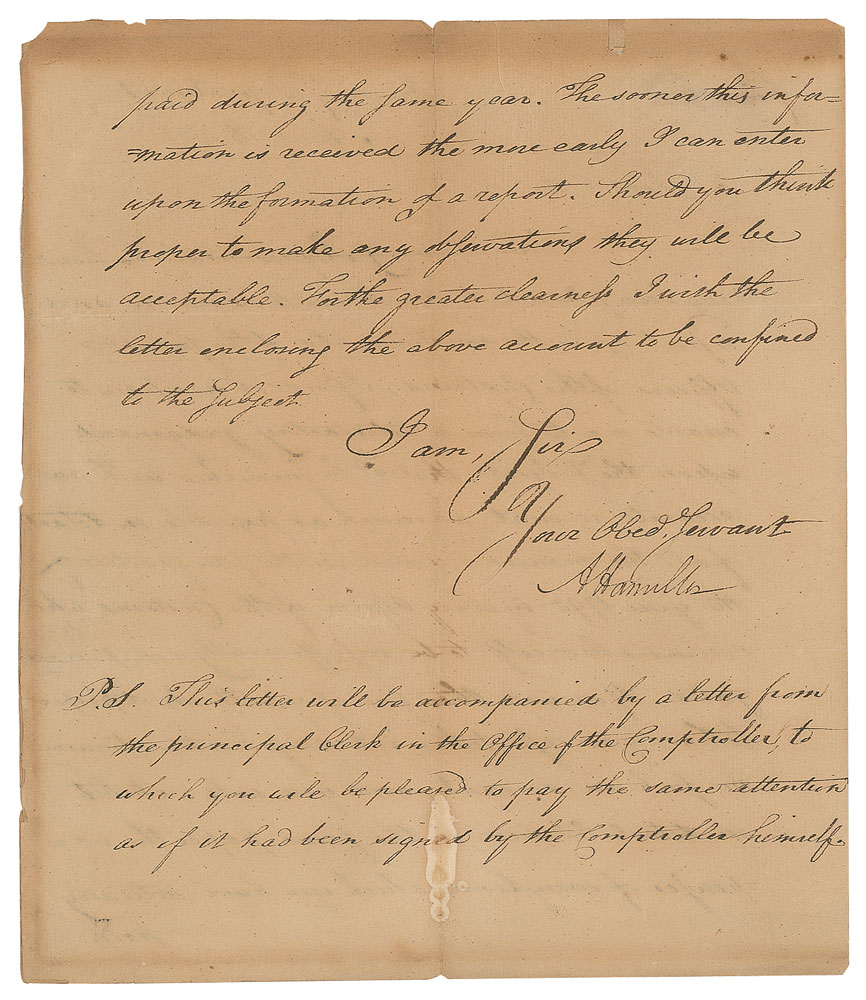 paid during the same year. The sooner this infor=
=mation is received the more early I can enter
upon the formation of a report. Should you think
proper to make any observations they will be
acceptable. For the greater clearness I wish the
letter enclosing the above account to be confined
to the Subject.
I am, Sir
Your Obed. Servant
A Hamilton
P.S. This letter will be accompanied by a letter from
the principal Clerk in the Office of the Comptroller, to
which you will be pleased to pay the same attention
as if it had been signed by the Comptroller himself.